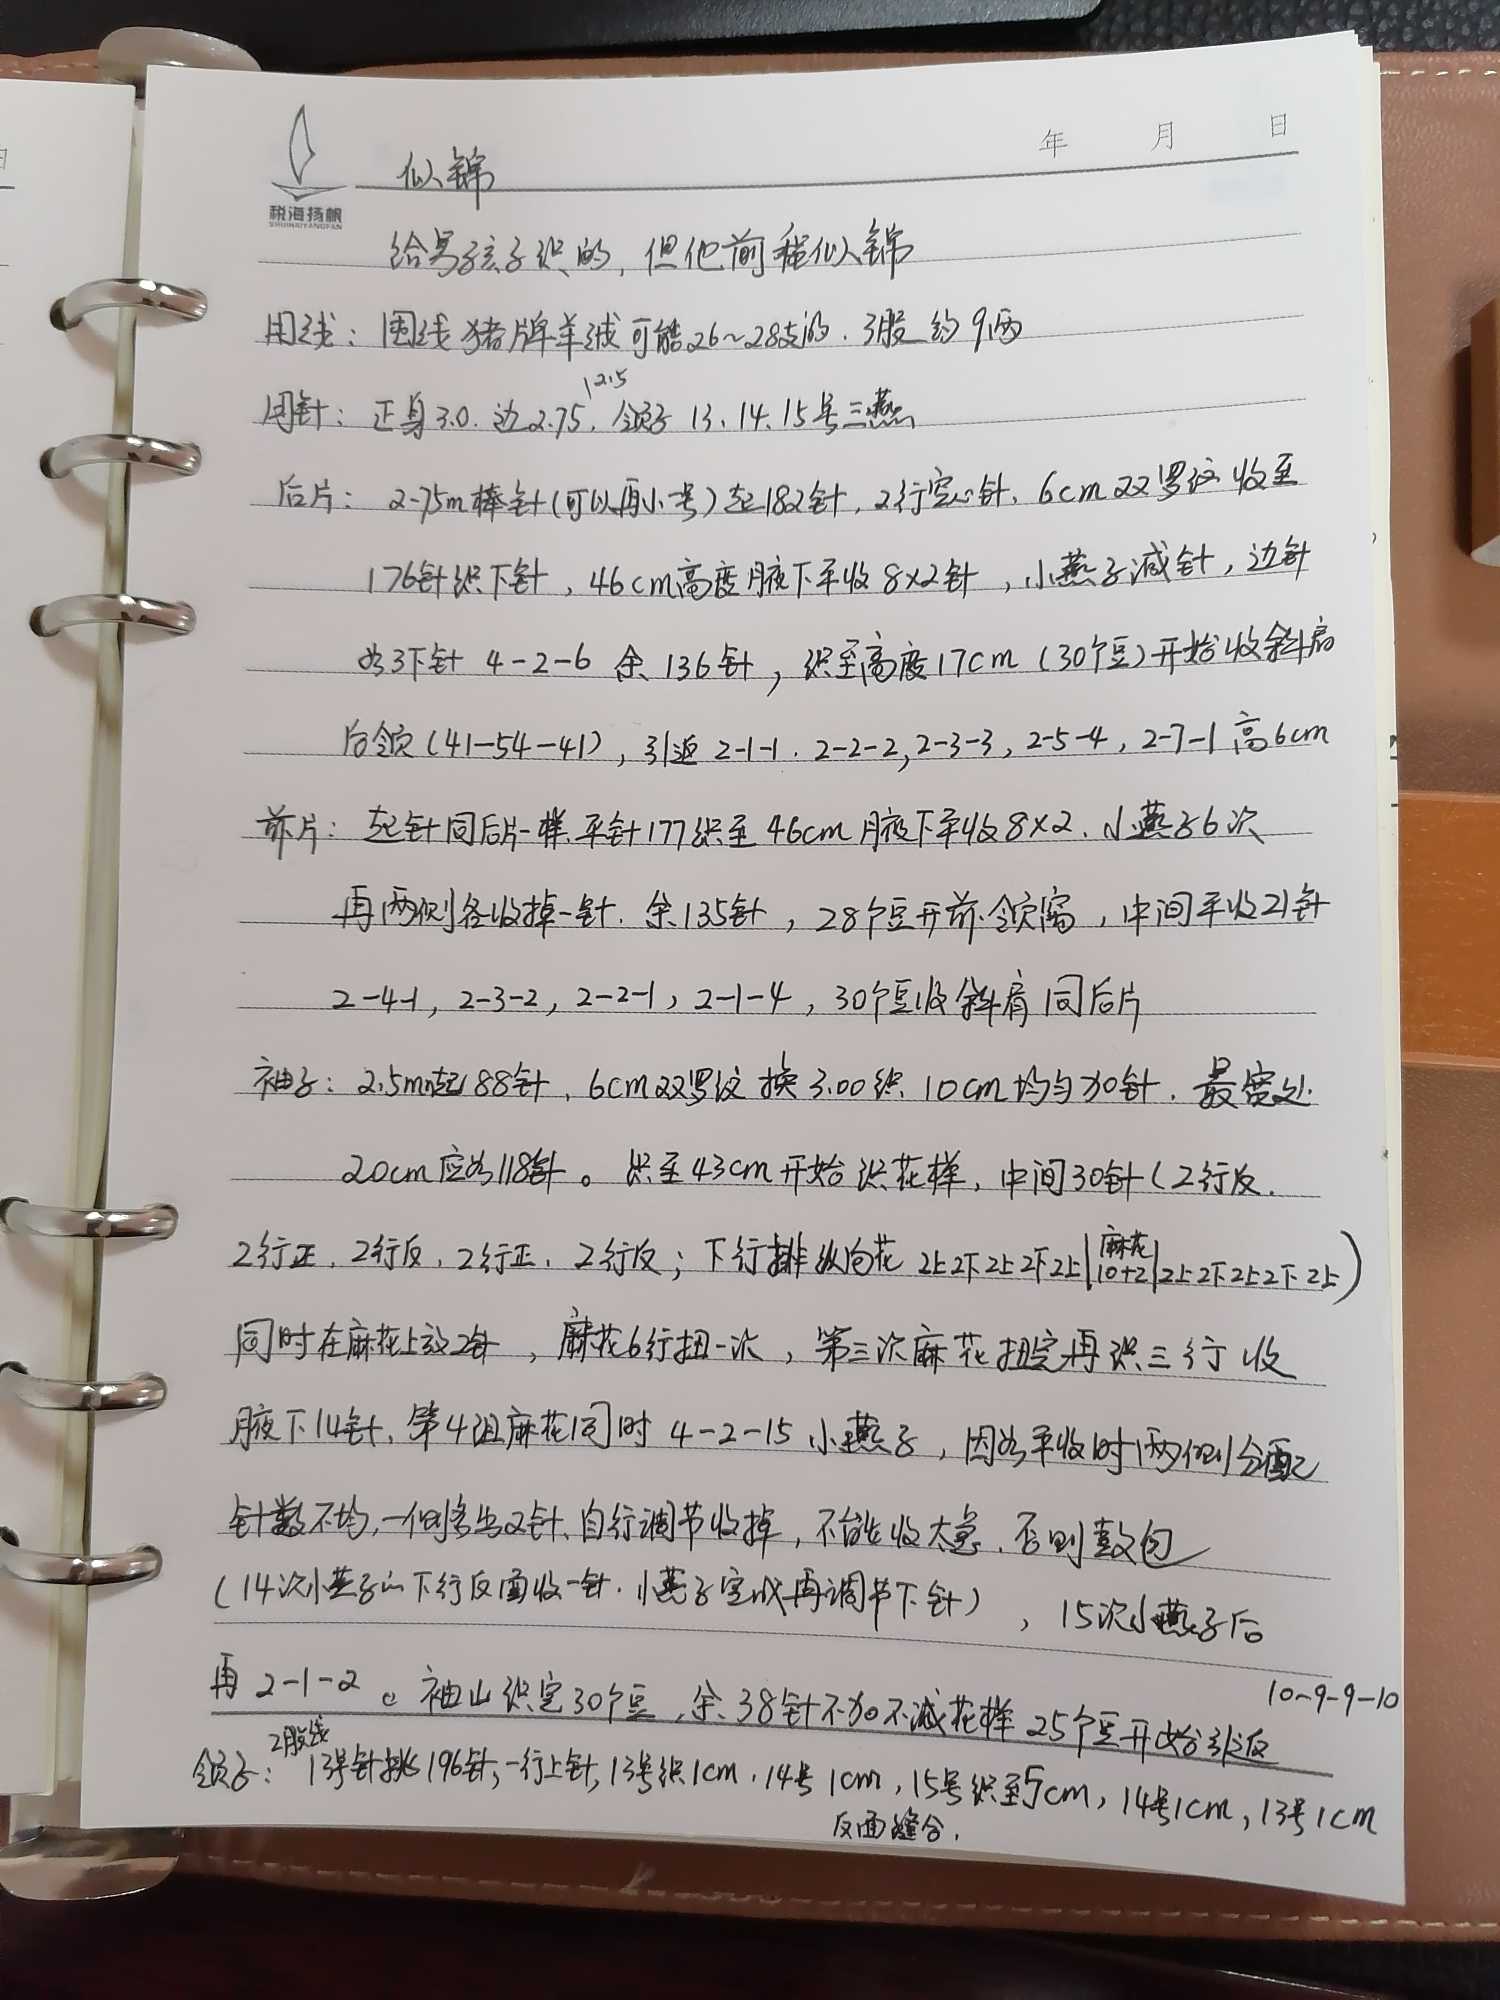 日
年 月 日
税海扬帆
SHUIHAIYANGFAN
似锦
给男孩子织的，但他前程似锦
用线：围线 猪牌羊绒可能26～28支的．3股约9两
用针：正身3.0．边2.75，2.5 领子 13、14、15号三燕
后片：2.75m棒针(可以再小号)起182针，2行空心针，6cm双罗纹收至
176针织下针，46cm高度腋下平收8×2针，小燕子减针，边针
为3下针 4-2-6 余136针，织至高度17cm（30个豆）开始收斜肩
后领(41-54-41)，引返 2-1-1．2-2-2，2-3-3，2-5-4，2-7-1 高6cm
前片：起针同后片一样，平针177织至46cm腋下平收8×2．小燕子6次
再两侧各收掉一针．余135针，28个豆开前领窝，中间平收21针
2-4-1，2-3-2，2-2-1，2-1-4，30个豆收斜肩同后片
袖子：2.5m起88针，6cm双罗纹换3.00织 10cm均匀加针．最宽处
20cm应为118针。织至43cm开始织花样，中间30针(2行反．
2行正．2行反．2行正．2行反；下行排纵向花 2上2下2上2下2上|麻花10+2|2上2下2上2下2上)
同时在麻花上放2针，麻花6行扭一次，第三次麻花扭完再织三行收
腋下14针．第4组麻花同时 4-2-15 小燕子，因为平收时两侧分配
针数不均，一侧多出2针，自行调节收掉，不能收太急．否则鼓包
(14次小燕子的下行反面收一针．小燕子完成再调节下针)，15次小燕子后
再 2-1-2。袖山织完30个豆，余38针不加不减花样 25个豆开始引返 10-9-9-10
领子：2股线 13号针挑196针，一行上针，13号织1cm．14号1cm，15号织至5cm，14号1cm，13号1cm
反面缝合．